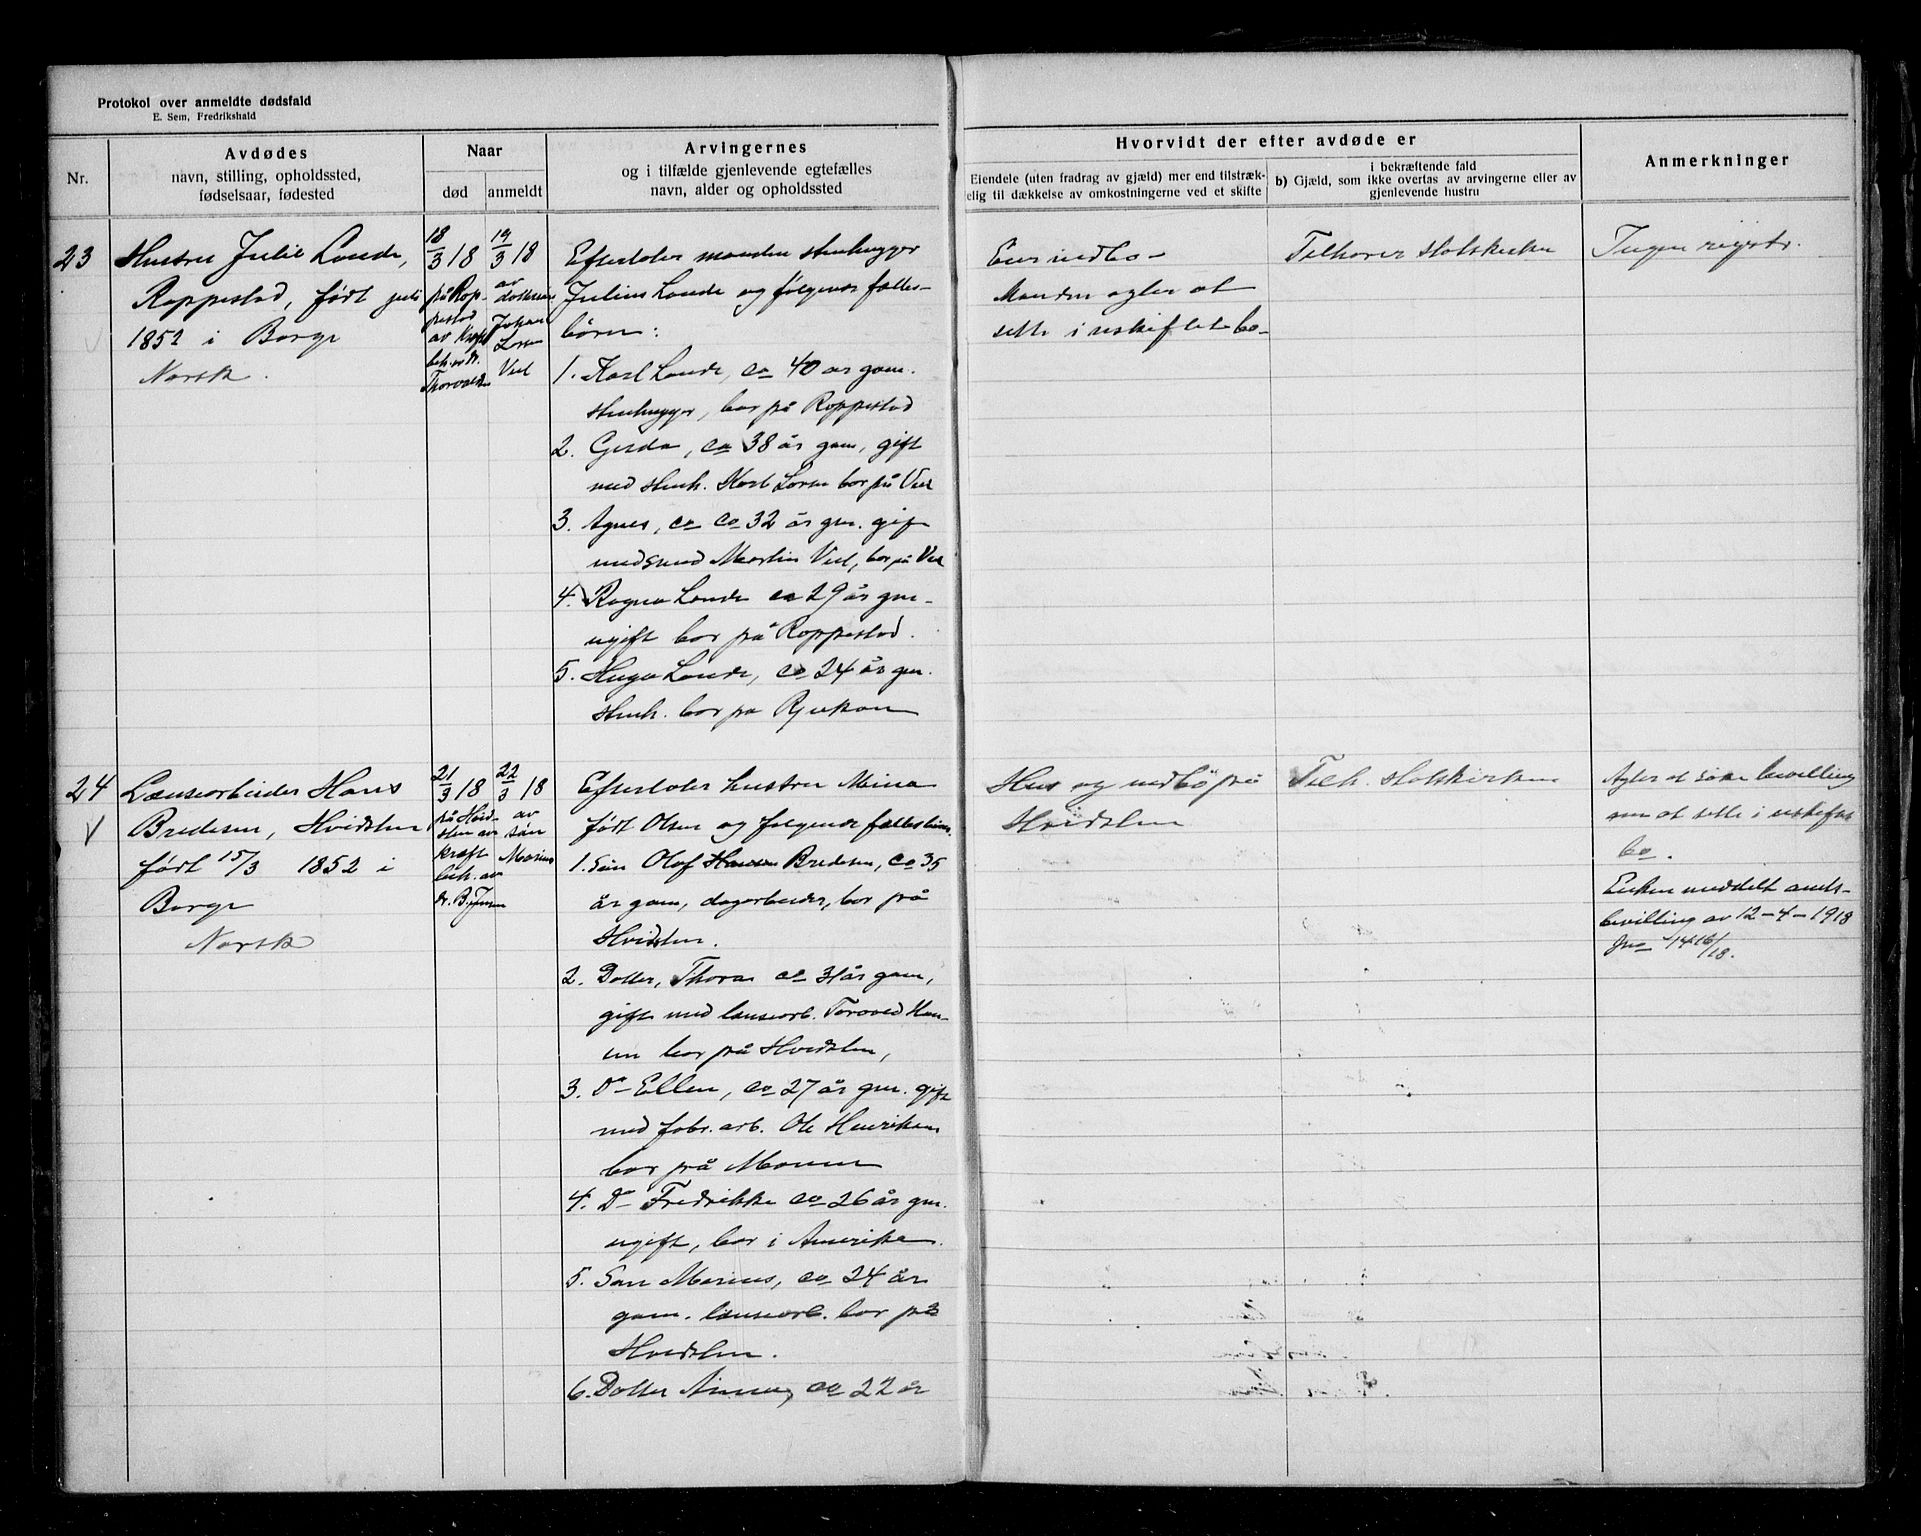 Protokol over anmeldte dødsfald
E. Sem, Fredrikshald
Nr.
Avdødes
navn, stilling, opholdssted,
fødselsaar, fødested
Naar
død
anmeldt
Arvingernes
og i tilfælde gjenlevende egtefælles
navn, alder og opholdssted
Hvorvidt der efter avdøde er
Eiendele (uten fradrag av gjæld) mer end tilstræk-
elig til dækkelse av omkostningerne ved et skifte
i bekræftende fald
b) Gjæld, som ikke overtas av arvingerne eller av
gjenlevende hustru
Anmerkninger
23
Hustru Julie Lande,
Roppestad, født juli
1852 i Borge
Norsk.
18/3 18
på Rop-
pestad
av
dr.
Thorvalds
19/3 18
av
Johan
Larsen
Vel
Efterlater manden stenhugger
Julius Lande og følgende felles-
børn:
1. Karl Lande, ca 40 år gam.
stenhugger, bor på Roppestad
2. Gerda, ca 38 år gam, gift
med stenh. Karl Larsen bor på
3. Agnes, ca ca 32 år gm. gift
med smed Martin, bor på
4. Ragna Lande ca 29 år gm.
ugift bor på Roppestad.
5. Hugo Lande, ca 24 år gm.
stenh. bor på Rjukan
Eier indbo -
Manden agter at
sitte i uskiftet bo -
Tilhører statskirken
Ingen registr.
24
V
Lænsearbeider Hans
Bredesen, Hvidsten
født 15/3 1852 i
Borge
Norsk
21/3 18
på Hvid-
sten av
kræft
beh. av
dr.
22/3 18
av
søn
Marius
Efterlater hustru Mina
født Olsen og følgende fellesbørn
1. Søn Olaf Hansen Bredesen, ca 35
år gam, dagarbeider, bor på
Hvidsten.
2. Datter, Thora ca 31 år gam,
gift med lænsearb. Torvald Han-
sen bor på Hvidsten,
3. Do Ellen, ca 27 år gm. gift
med fabr. arb. Ole Henriksen
bor på Moum
4. Do Fredrikke ca 26 år gm.
ugift, bor i Amerika.
5. Søn Marius, ca 24 år
gam. lænsearb. bor på
Hvidsten.
6. Datter Anna, ca 22 år
Hus og indbo på
Hvidsten
Tilh. statskirken
Agter at søke bevilling
om at sitte i uskiftet
bo.
Enken meddelt amts-
bevilling av 12-4-1918
Jno 1416/18.